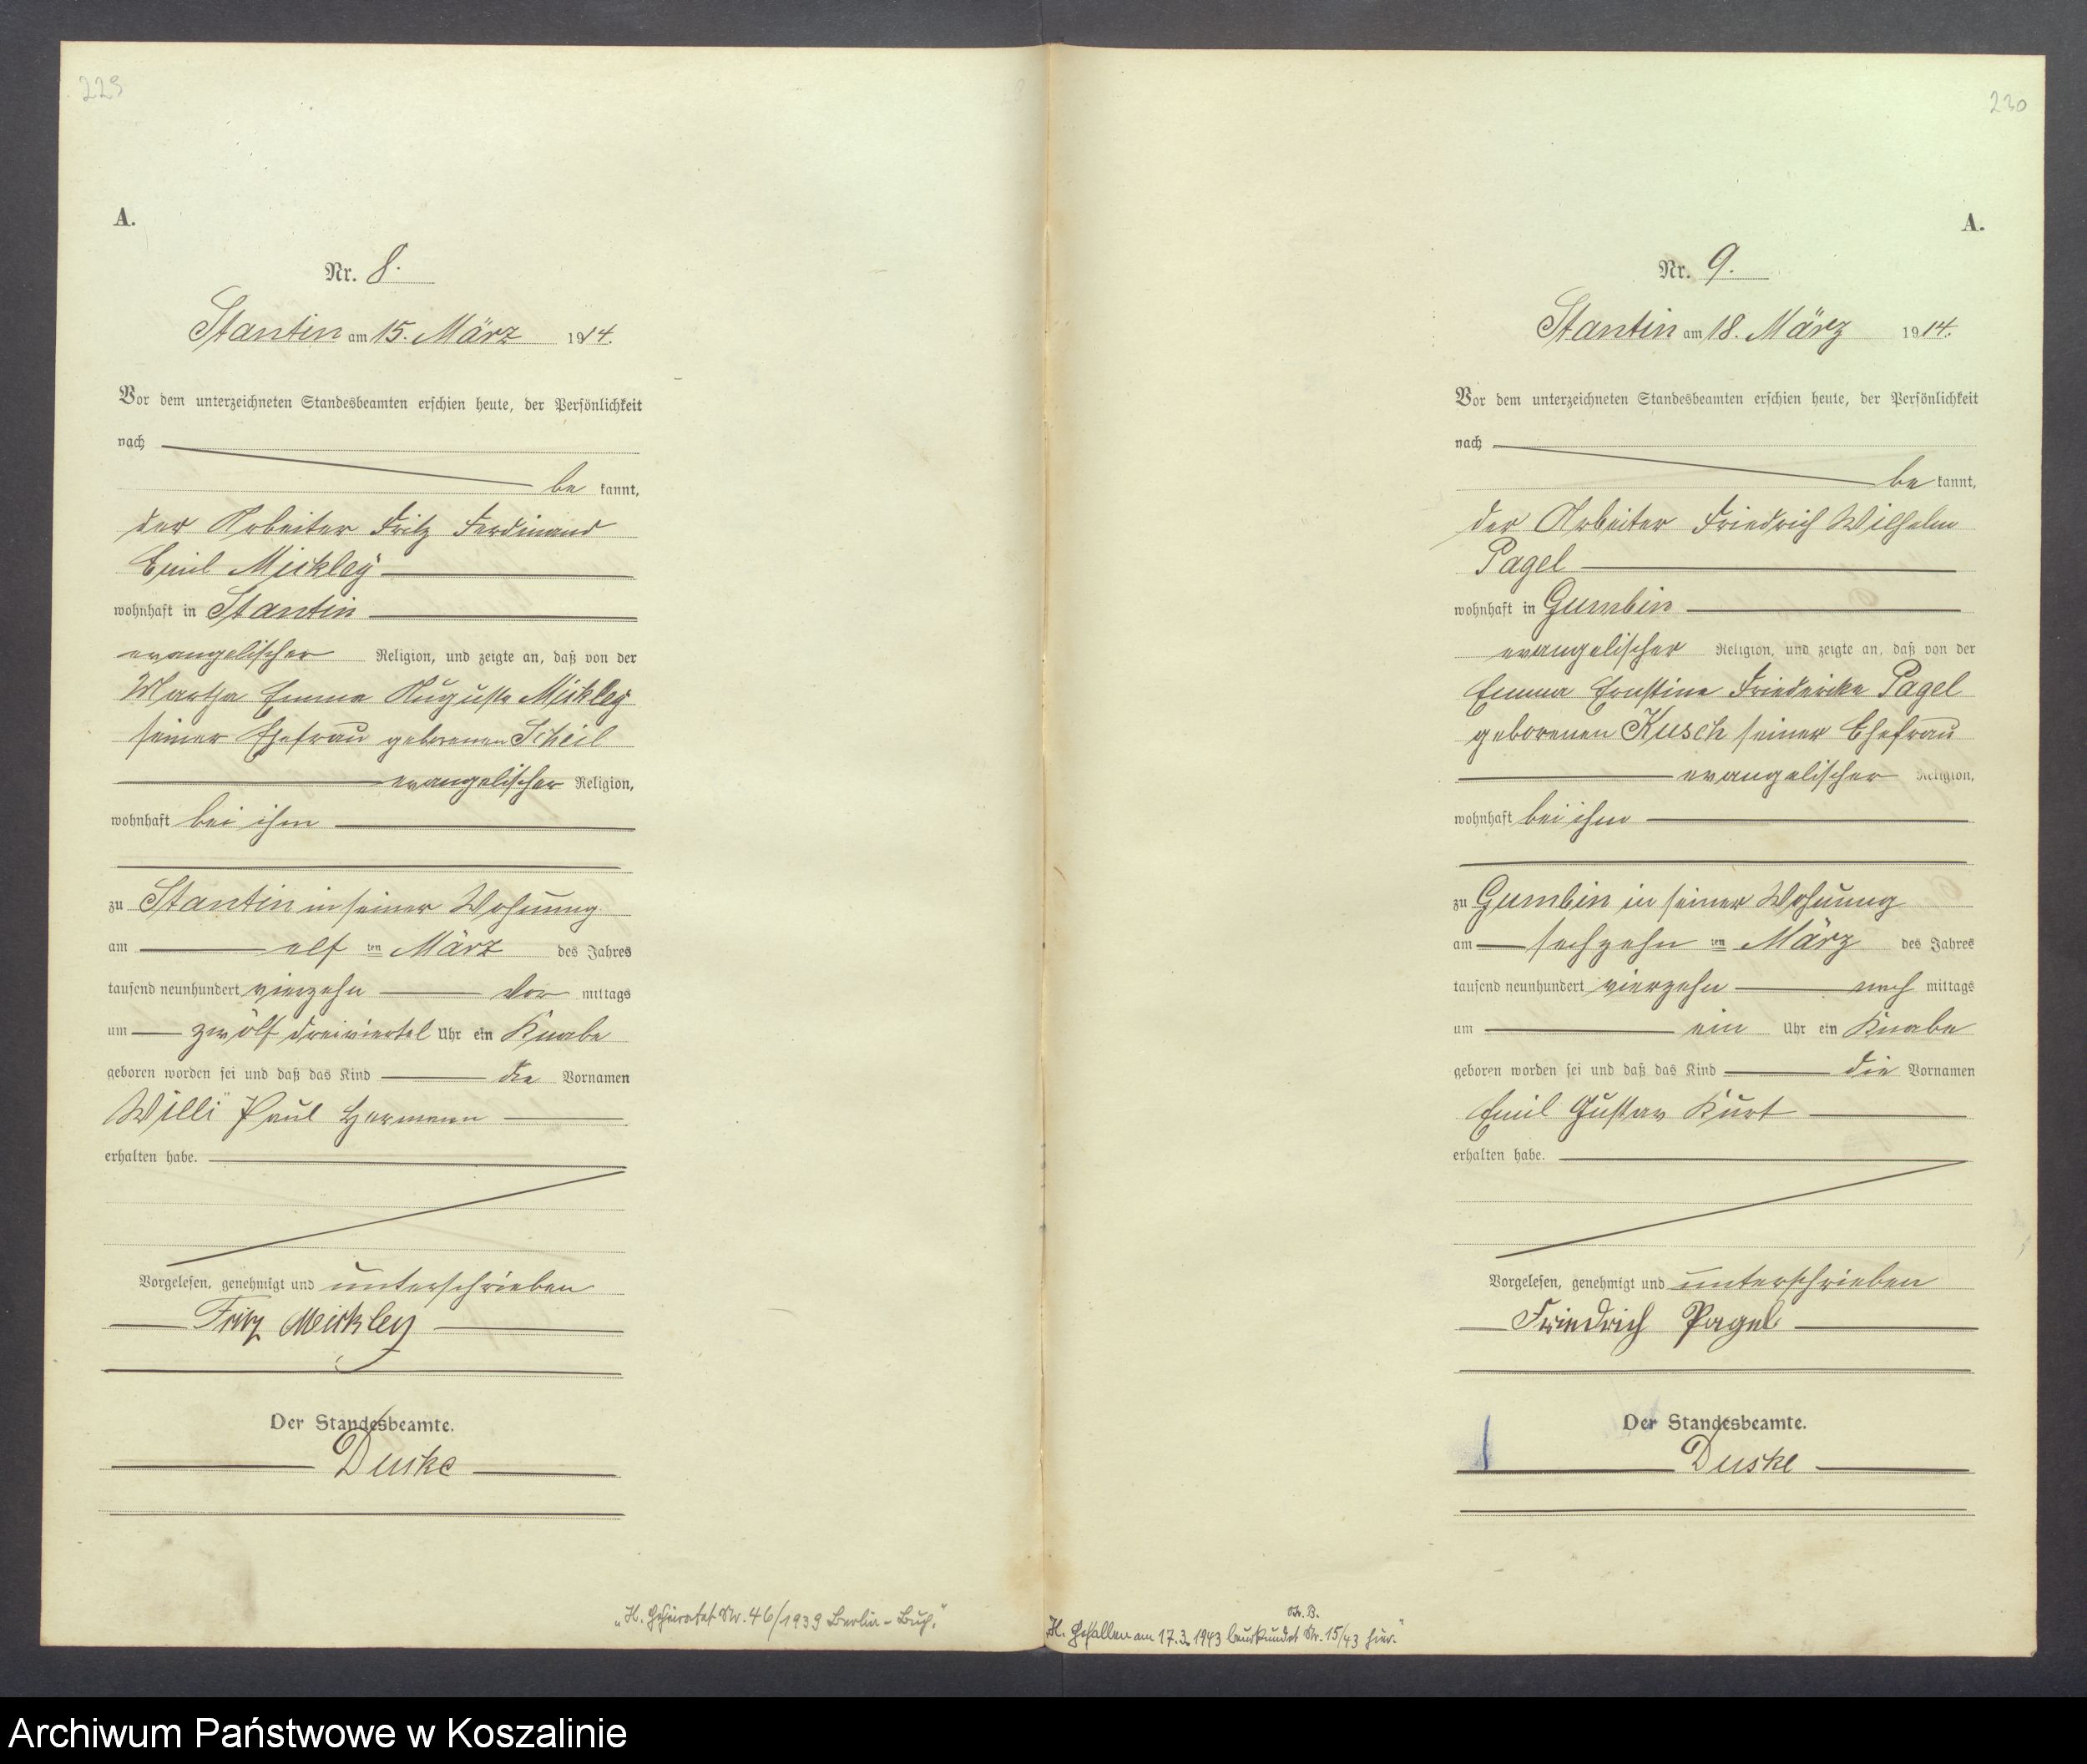 229
A.
Nr. 8.
Stantin am 15. März 1914.
Vor dem unterzeichneten Standesbeamten erschien heute, der Persönlichkeit
nach
be kannt,
der Arbeiter Fritz Ferdinand
Emil Mickley
wohnhaft in Stantin
evangelischer Religion, und zeigte an, daß von der
Martha Emma Auguste Mickley
seiner Ehefrau geborenen Scheil
evangelischer Religion,
wohnhaft bei ihm
zu Stantin in seiner Wohnung
am elf ten März des Jahres
tausend neunhundert vierzehn vor mittags
um zwölf dreiviertel Uhr ein Knabe
geboren worden sei und daß das Kind die Vornamen
Willi Paul Hermann
erhalten habe.
Vorgelesen, genehmigt und unterschrieben
Fritz Meickley
Der Standesbeamte.
Duske
„H. Geheiratet Nr. 46/1939 Berlin-Buch."
230
A.
Nr. 9.
Stantin am 18. März 1914.
Vor dem unterzeichneten Standesbeamten erschien heute, der Persönlichkeit
nach
be kannt,
der Arbeiter Friedrich Wilhelm
Pagel
wohnhaft in Gumbin
evangelischer Religion, und zeigte an, daß von der
Emma Ernstine Friederike Pagel
geborenen Kusch seiner Ehefrau
evangelischer Religion,
wohnhaft bei ihm
zu Gumbin in seiner Wohnung
am sechzehn ten März des Jahres
tausend neunhundert vierzehn nach mittags
um ein Uhr ein Knabe
geboren worden sei und daß das Kind die Vornamen
Emil Gustav Kurt
erhalten habe.
Vorgelesen, genehmigt und unterschrieben
Friedrich Pagel
Der Standesbeamte.
Duske
St. B.
„H. Gefallen am 17.3.1943 beurkundet Nr. 15/43 hier."
Archiwum Państwowe w Koszalinie